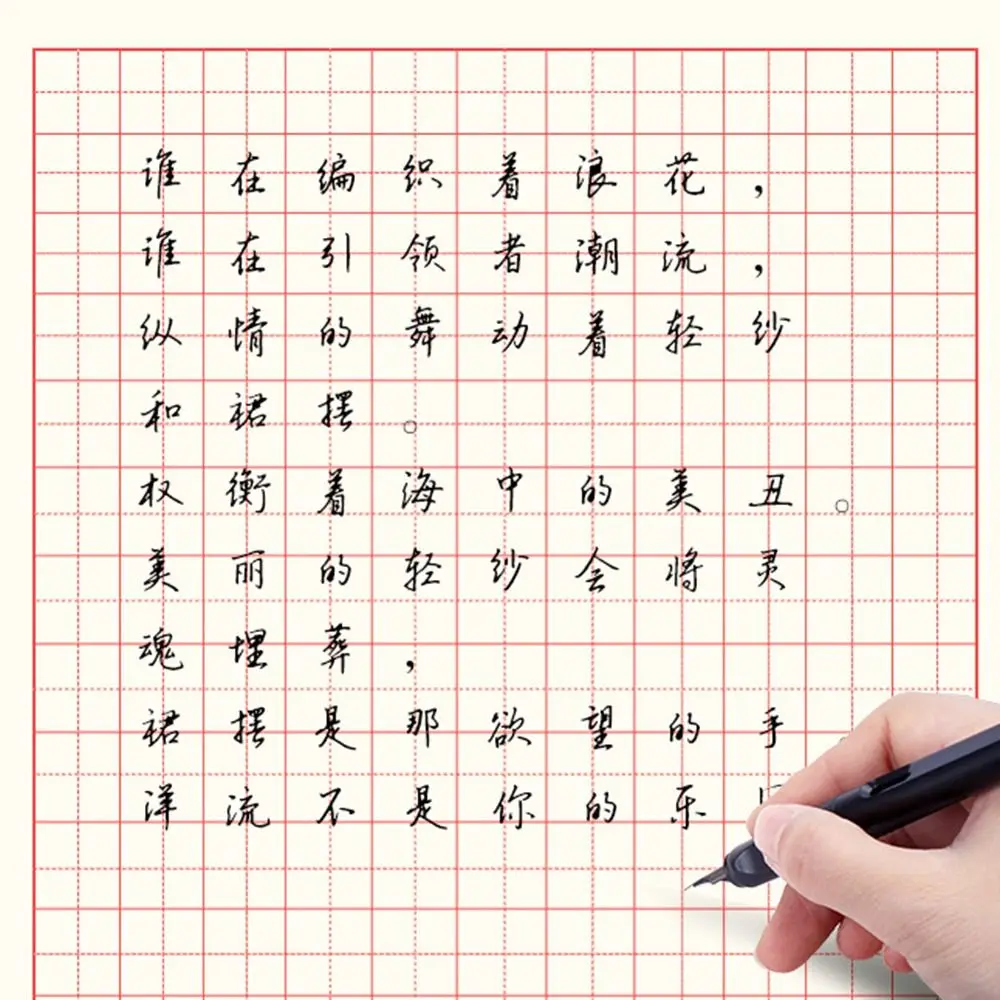 谁在编织着浪花，
谁在引领者潮流，
纵情的舞动着轻纱
和裙摆。
权衡着海中的美丑。
美丽的轻纱会将灵
魂埋葬，
裙摆是那欲望的手
洋流不是你的乐